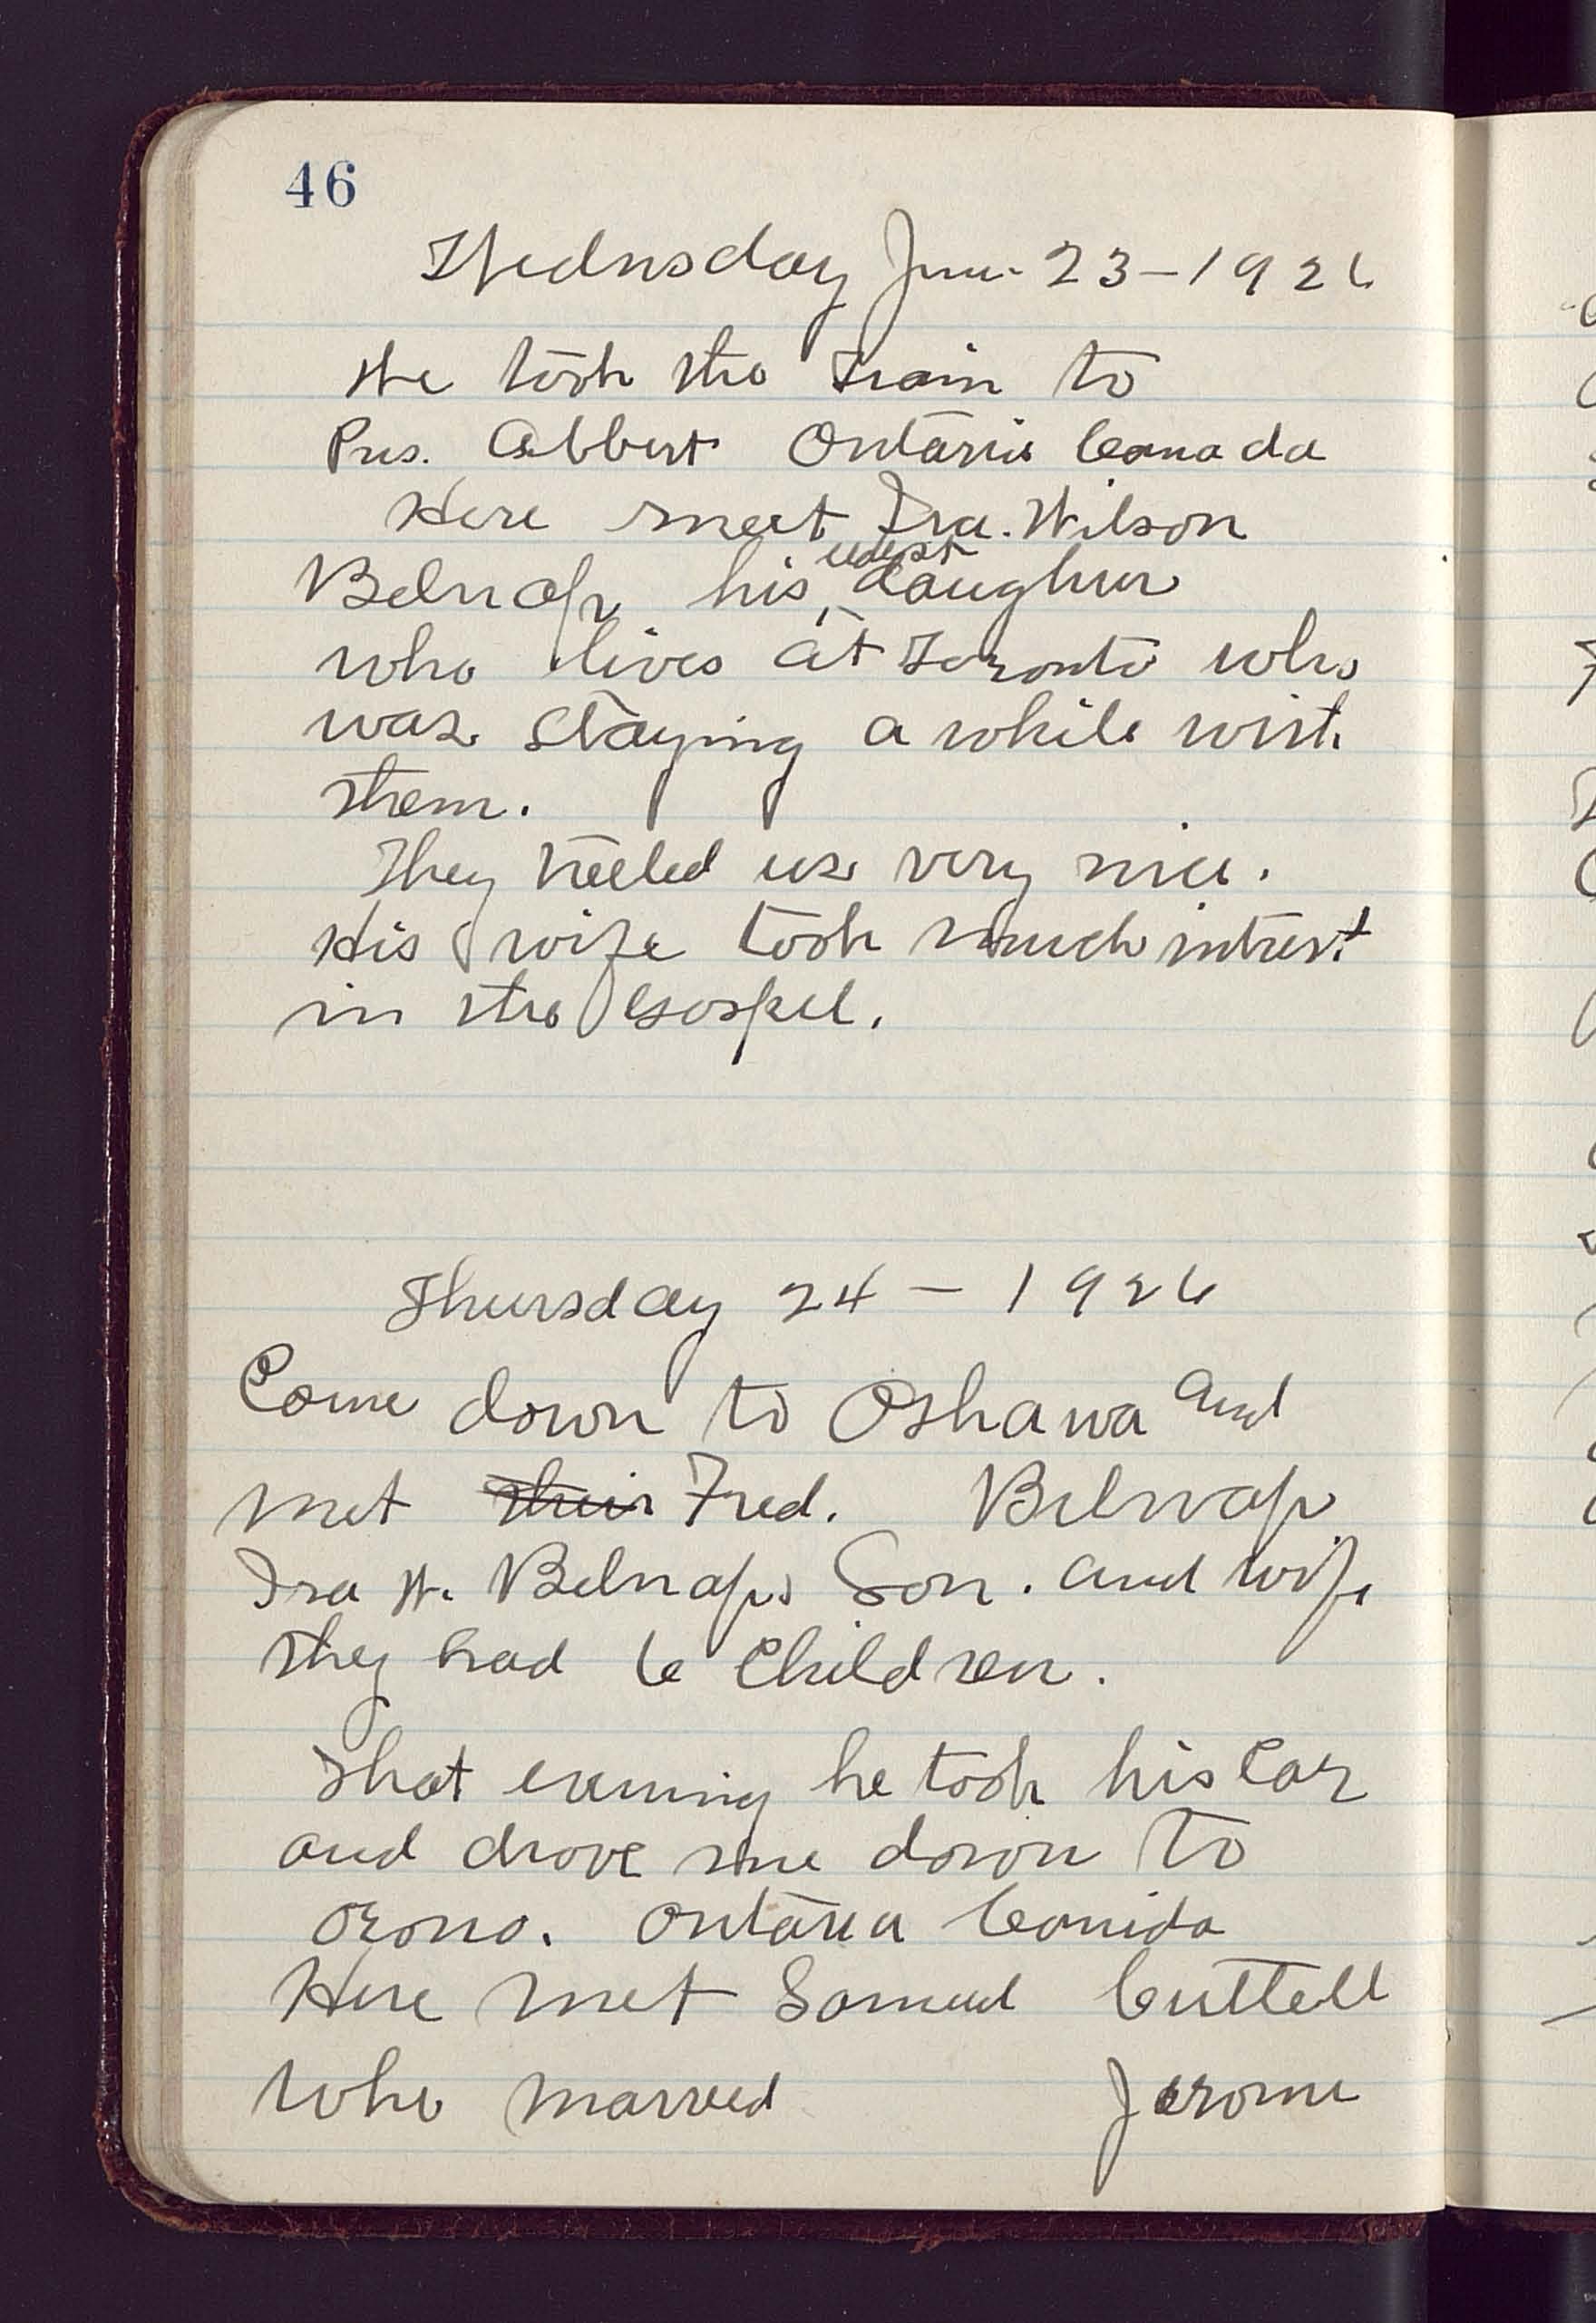 46
Wednsday June 23-1926
We took the train to
Pris. Albbert Ontario Canada
Here meet Ira. Wilson
Belnap his daughter
who lives at Toronto who
was staying a while with
them.
They treeted us very nice.
His wife took much intrest
in the Gospel.
Thursday 24 - 1926
Come down to Oshawa and
met their Fred. Belnap
Ira W. Belnaps Son. and wife
they had 6 Children.
That evening he took his Car
and drove me down to
Orono. Ontaria Canida
Here met Samuel Cuttell
who married Jerome